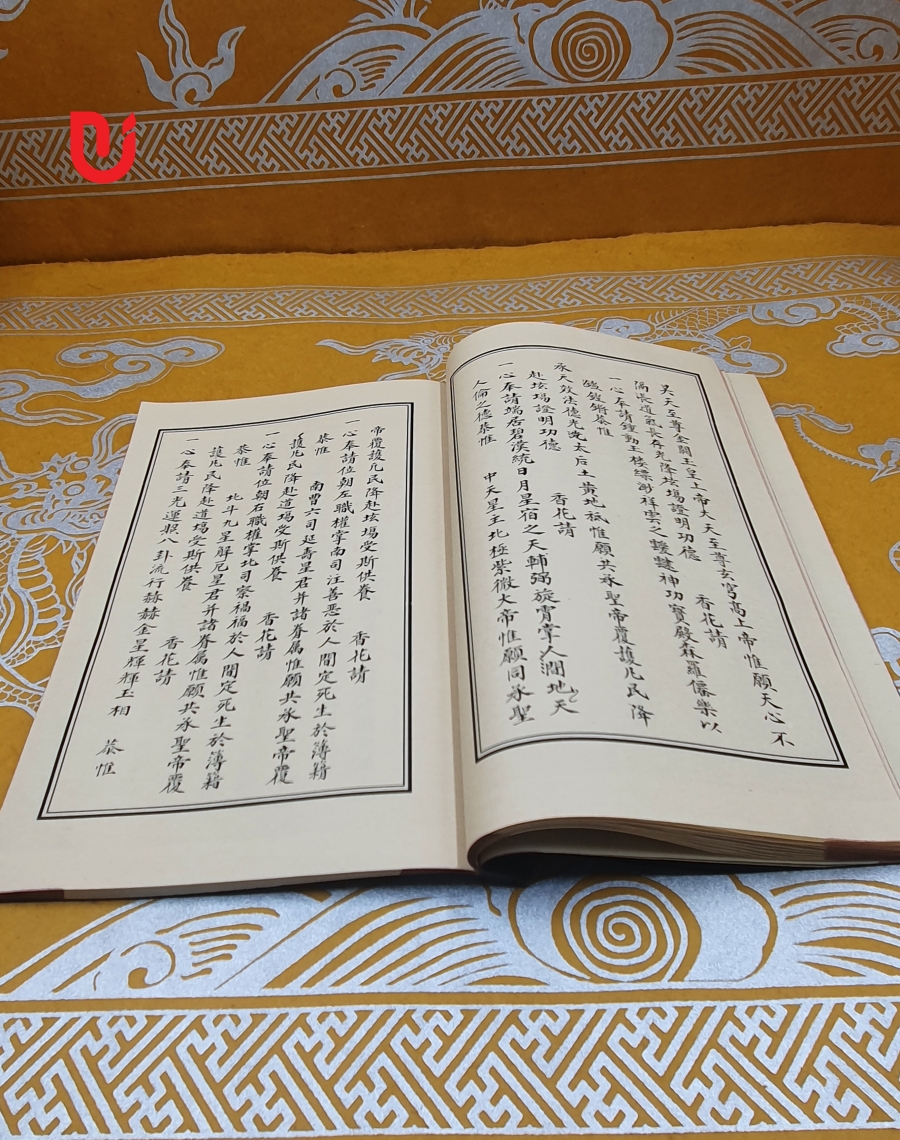 昊天至尊金闕玉皇上帝大天至尊玄穹高上帝惟願天心不
隔長道氣長存光降坛場證明功德 香花請
一心奉請鍾動玉楼縹緲祥雲之靉靆神功寳殿森羅僊樂以
鏗鏘恭惟
承天效法德光大后土黄地祗惟願共承聖帝覆護凡民降
赴坛場證明功德 香花請
一心奉請端居碧漢統日月星宿之天輔弼旋霄掌人澗地天
人倫之德恭惟 中天星主北極紫微大帝惟願同承聖
帝覆護凡民降赴坛場受斯供養 香花請
一心奉請位朝左職權掌南司注善悪於人間定死生於簿籍
恭惟 南曹六司延壽星君并諸眷属惟願共承聖帝覆
護凡民降赴道塲受斯供養 香花請
一心奉請位朝右職權掌北司察禍福於人間定死生於簿籍
恭惟 北斗九星解厄星君并諸眷属惟願共承聖帝覆
護凡民降赴道塲受斯供養 香花請
一心奉請三光運照八卦流行赫赫金星輝輝玉相 恭惟